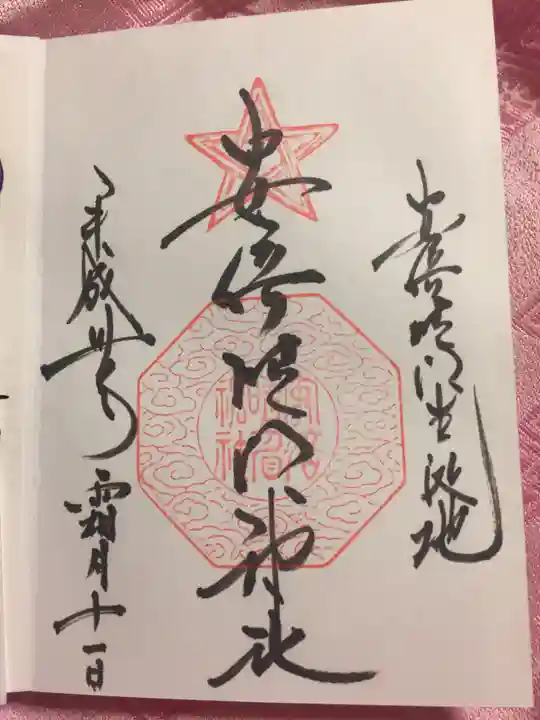 安倍晴明生誕地
安倍晴明神社
平成卅年霜月十一日